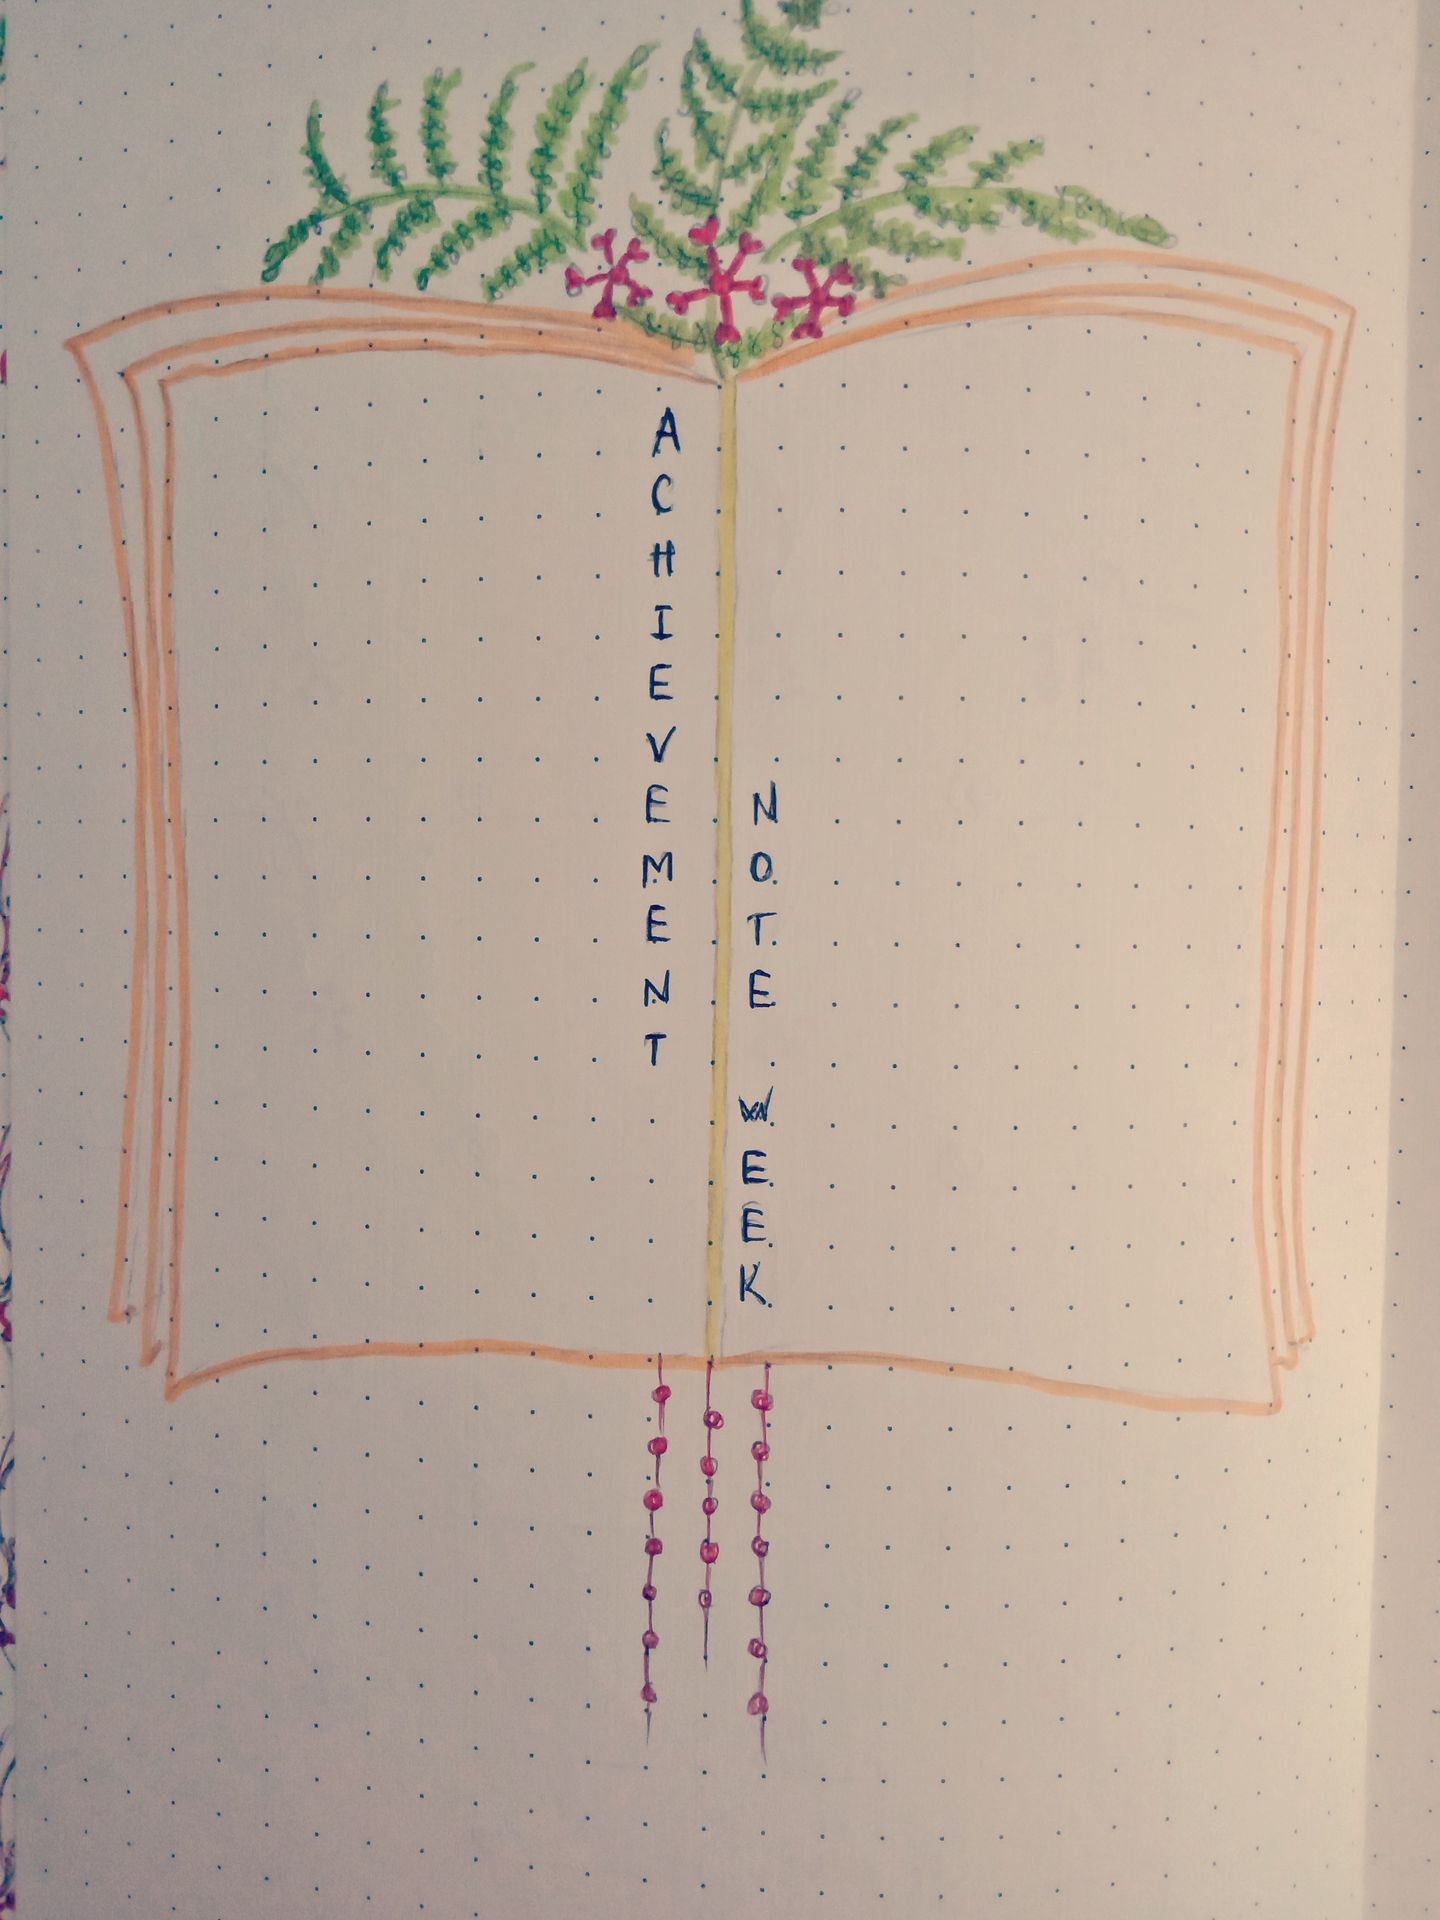 ACHIEVEMENT
NOTE WEEK